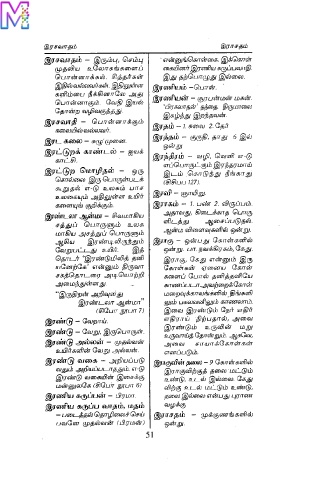 இரசவாதம்
இராசதம்
இரசவாதம் – இரும்பு, செம்பு
முதலிய உலோகங்களைப்
பொன்னாக்கல். சித்தர்கள்
இதில் வல்லவர்கள். இதிலுள்ள
களிம்பை நீக்கினாலே அது
பொன்னாகும். வேதி இயல்
தோன்ற வழிவகுத்தது.
இரசவாதி – பொன்னாக்கும்
கலையில் வல்லவர்.
இரட கலை – சுழுமுனை.
இரட்டுறக் காண்டல் – ஐயக்
காட்சி.
இரட்டுற மொழிதல் – ஒரு
சொல்லை இரு பொருள்படக்
கூறுதல். எ-டு உலகம் பாச
உலகையும் அதிலுள்ள உயிர்
களையுங் குறிக்கும்.
இரண்டலா ஆன்மா – சிவமாகிய
சத்துப் பொருளும் உலக
மாகிய அசத்துப் பொருளும்
ஆகிய இரண்டிலிருந்தும்
வேறுபட்டது உயிர். இத்
தொடர் "இரண்டுமிலித் தனி
யனேற்கே" என்னும் திருவா
சகத்தொடரை அடியொற்றி
அமைந்துள்ளது.
"இருதிறன் அறிவுளது
இரண்டலா ஆன்மா"
(சிபோ நூபா 7)
இரண்டு – வேறாய்.
இரண்டு – வேறு, இருபொருள்.
இரண்டு அல்லன் – முதல்வன்
உயிர்களின் வேறு அல்லன்.
இரண்டு வகை – அறியப்படு
வதும் அறியப்படாததும். எ-டு
இரண்டு வகையின் இசைக்கு
மன்னுலகே (சிபோ நூபா 6)
இரணிய கருப்பன் – பிரமா.
இரணிய கருப்ப வாதம், மதம்
– படைத்தல் தொழிலைச் செய்
பவனே முதல்வன் (பிரமன்)
என்னுங் கொள்கை. இக்கொள்
கையினர் இரணிய கருப்பவாதி.
இது தற்பொழுது இல்லை.
இரணியம் – பொன்.
இரணியன் – சூரபன்மன் மகன்.
'பிரகலாதன்' தந்தை. திருமாலை
இகழ்ந்து இறந்தவன்.
இரதம் – 1. சுவை 2. தேர்
இரத்தம் – குருதி, தாது 6 இல்
ஒன்று
இரந்திரம் – வழி, வெளி எ-டு
எப்பொருட்கும் இரந்தரமாய்
இடம் கொடுத்து நீங்காது
(சிசிபப 127).
இரவி – ஞாயிறு.
இராகம் – 1. பண் 2. விருப்பம்.
அதாவது, கிடைக்காத பொரு
ளிடத்து ஆசைப்படுதல்.
ஆன்ம விளைவுகளில் ஒன்று.
இராகு – ஒன்பது கோள்களில்
ஒன்று. பா. நவக்கிரகம், கேது.
இராகு, கேது என்னும் இரு
கோள்கள் ஏனைய கோள்
களைப் போல் தனித்தனியே
காணப்படா. அவற்றைக் கோள்
மறைவுக்காலங்களில் திங்களி
லும் பகலவனிலும் காணலாம்.
இவை இரண்டும் நேர் எதிர்
எதிராய் நிற்பதால், அவை
இரண்டும் உருவின் மறு
உருவாய்த் தோன்றும். ஆகவே,
அவை சாயாக்கோள்கள்
எனப்படும்.
இராகுவின் தலை – 9 கோள்களில்
இராகுவிற்குத் தலை மட்டும்
உண்டு, உடல் இல்லை. கேது
விற்கு உடல் மட்டும் உண்டு,
தலை இல்லை என்பது புராண
வழக்கு.
இராசதம் – முக்குணங்களில்
ஒன்று.
51